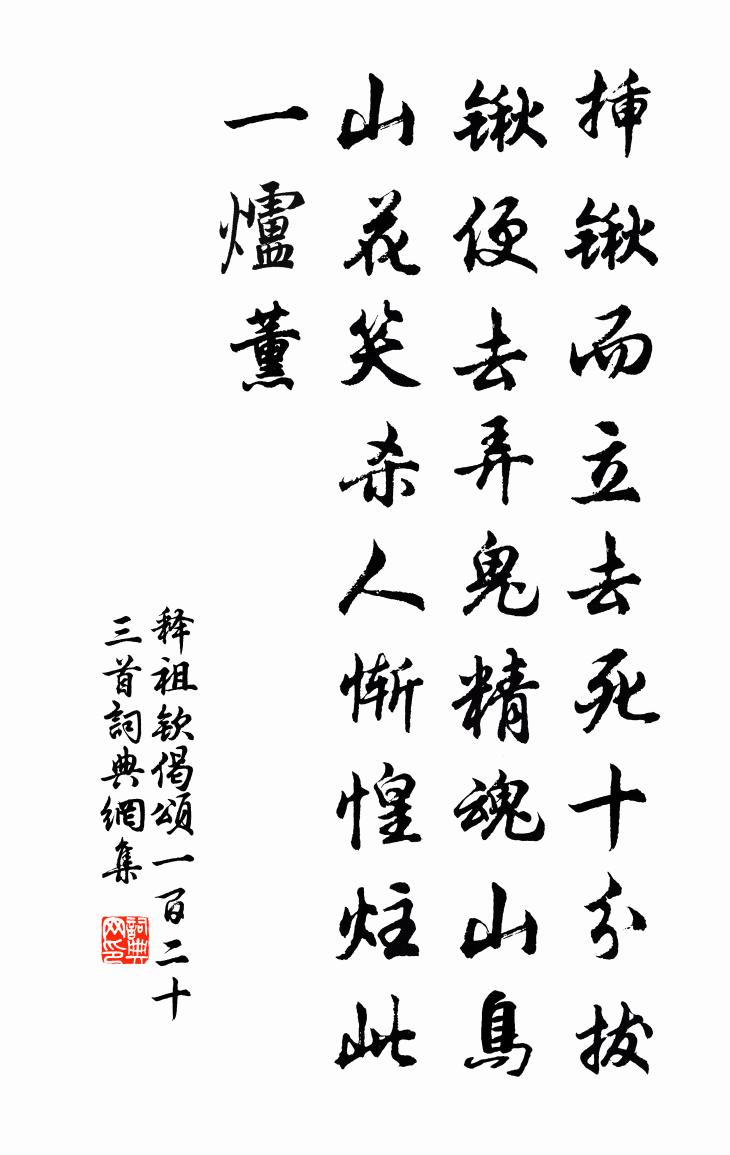 挿鍬而立去死十分拔
鍬便去弄鬼精魂山鳥
山花笑杀人惭惶炷此
一爐薰
释祖钦偈頌一百二十
三首詞典網集
詞典网印